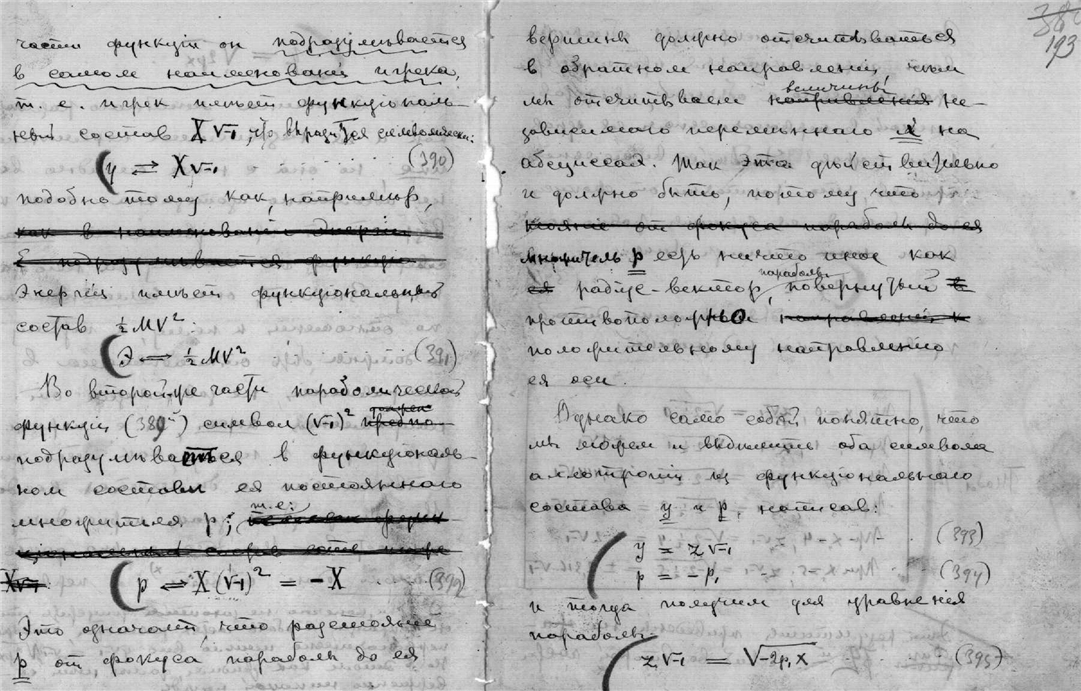 части функции он подразумѣвается
в самом наименовании игрека,
т. е. игрек имѣет функціональ-
ный состав X√-1, что выразится символически:
(y ⇄ X√-1 (390)
подобно тому как, например,
как в наименовании энергіи
Е подразумѣвается функція
Энергія имѣет функціональный
состав ½MV²:
(Э ⇄ ½MV² (391)
Во второй же части параболической
функціи (389²) символ (√-1)² должен
подразумѣваться в функціональ-
ном составѣ ея постояннаго
множителя p; т.е:
X√-1 (p ⇄ X(√-1)² = -X (392)
Это означает, что разстояніе
p от фокуса параболы до ея
193
вершины должно отсчитываться
в обратном направленіи, чѣм
мы отсчитываем направленія величины не-
зависимаго перемѣннаго x на
абсциссах. Так это дѣйствительно
и должно быть, потому что
стояніе от фокуса параболы до ея
множитель p есть ничто иное как
ея радіус-вектор параболы, повернутый в
противоположно направленіи к
положительному направленію
ея оси.
Однако само собой понятно, что
мы можем и выдѣлить оба символа
аллотропіи из функціональнаго
состава y и p, написав:
(y = z√-1 (393)
p = -p₁ (394)
и тогда получим для уравненія
параболы
(z√-1 = √-2p₁x (395)